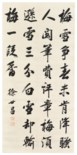 梅雪爭春未肯降騷
人閣筆費評章梅須
遜雪三分白雪卻輸
梅一段香 徐世昌